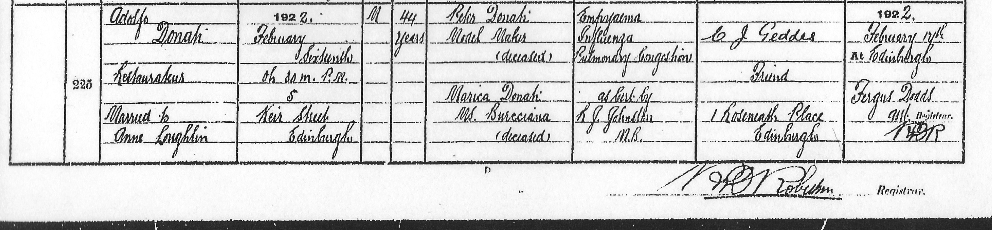 225
Adolfo
Donati
Restaurateur
Married to
Anne Loughlin
1922.
February
Sixteenth
0h 30m. P.M.
5
Keir Street
Edinburgh
M
44
Years
Peter Donati
Model Maker
(deceased)
Marica Donati
M.S. Bucciana
(deceased)
Empyaema
Influenza
Pulmonary Congestion
as Cert by
R J. Johnston
M.B.
C J Geddes
Friend
1 Roseneath Place
Edinburgh
1922.
February 17th
At Edinburgh
Fergus Dodds
Asst. Registrar.
Registrar.